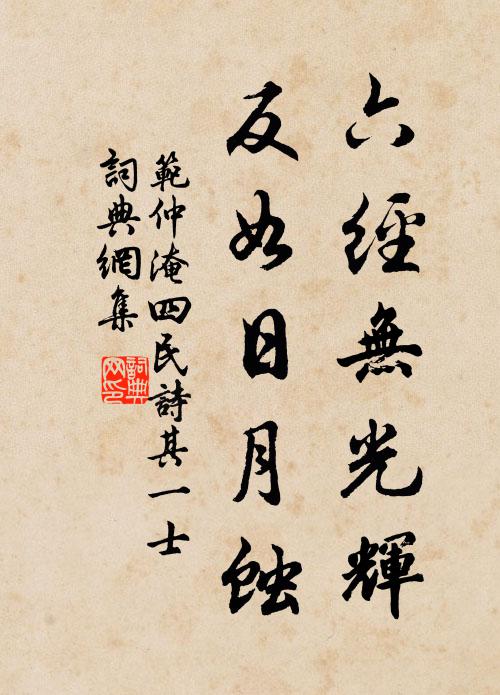 六經無光輝
反如日月蝕
範仲淹四民詩其一士
詞典網集
詞典网印